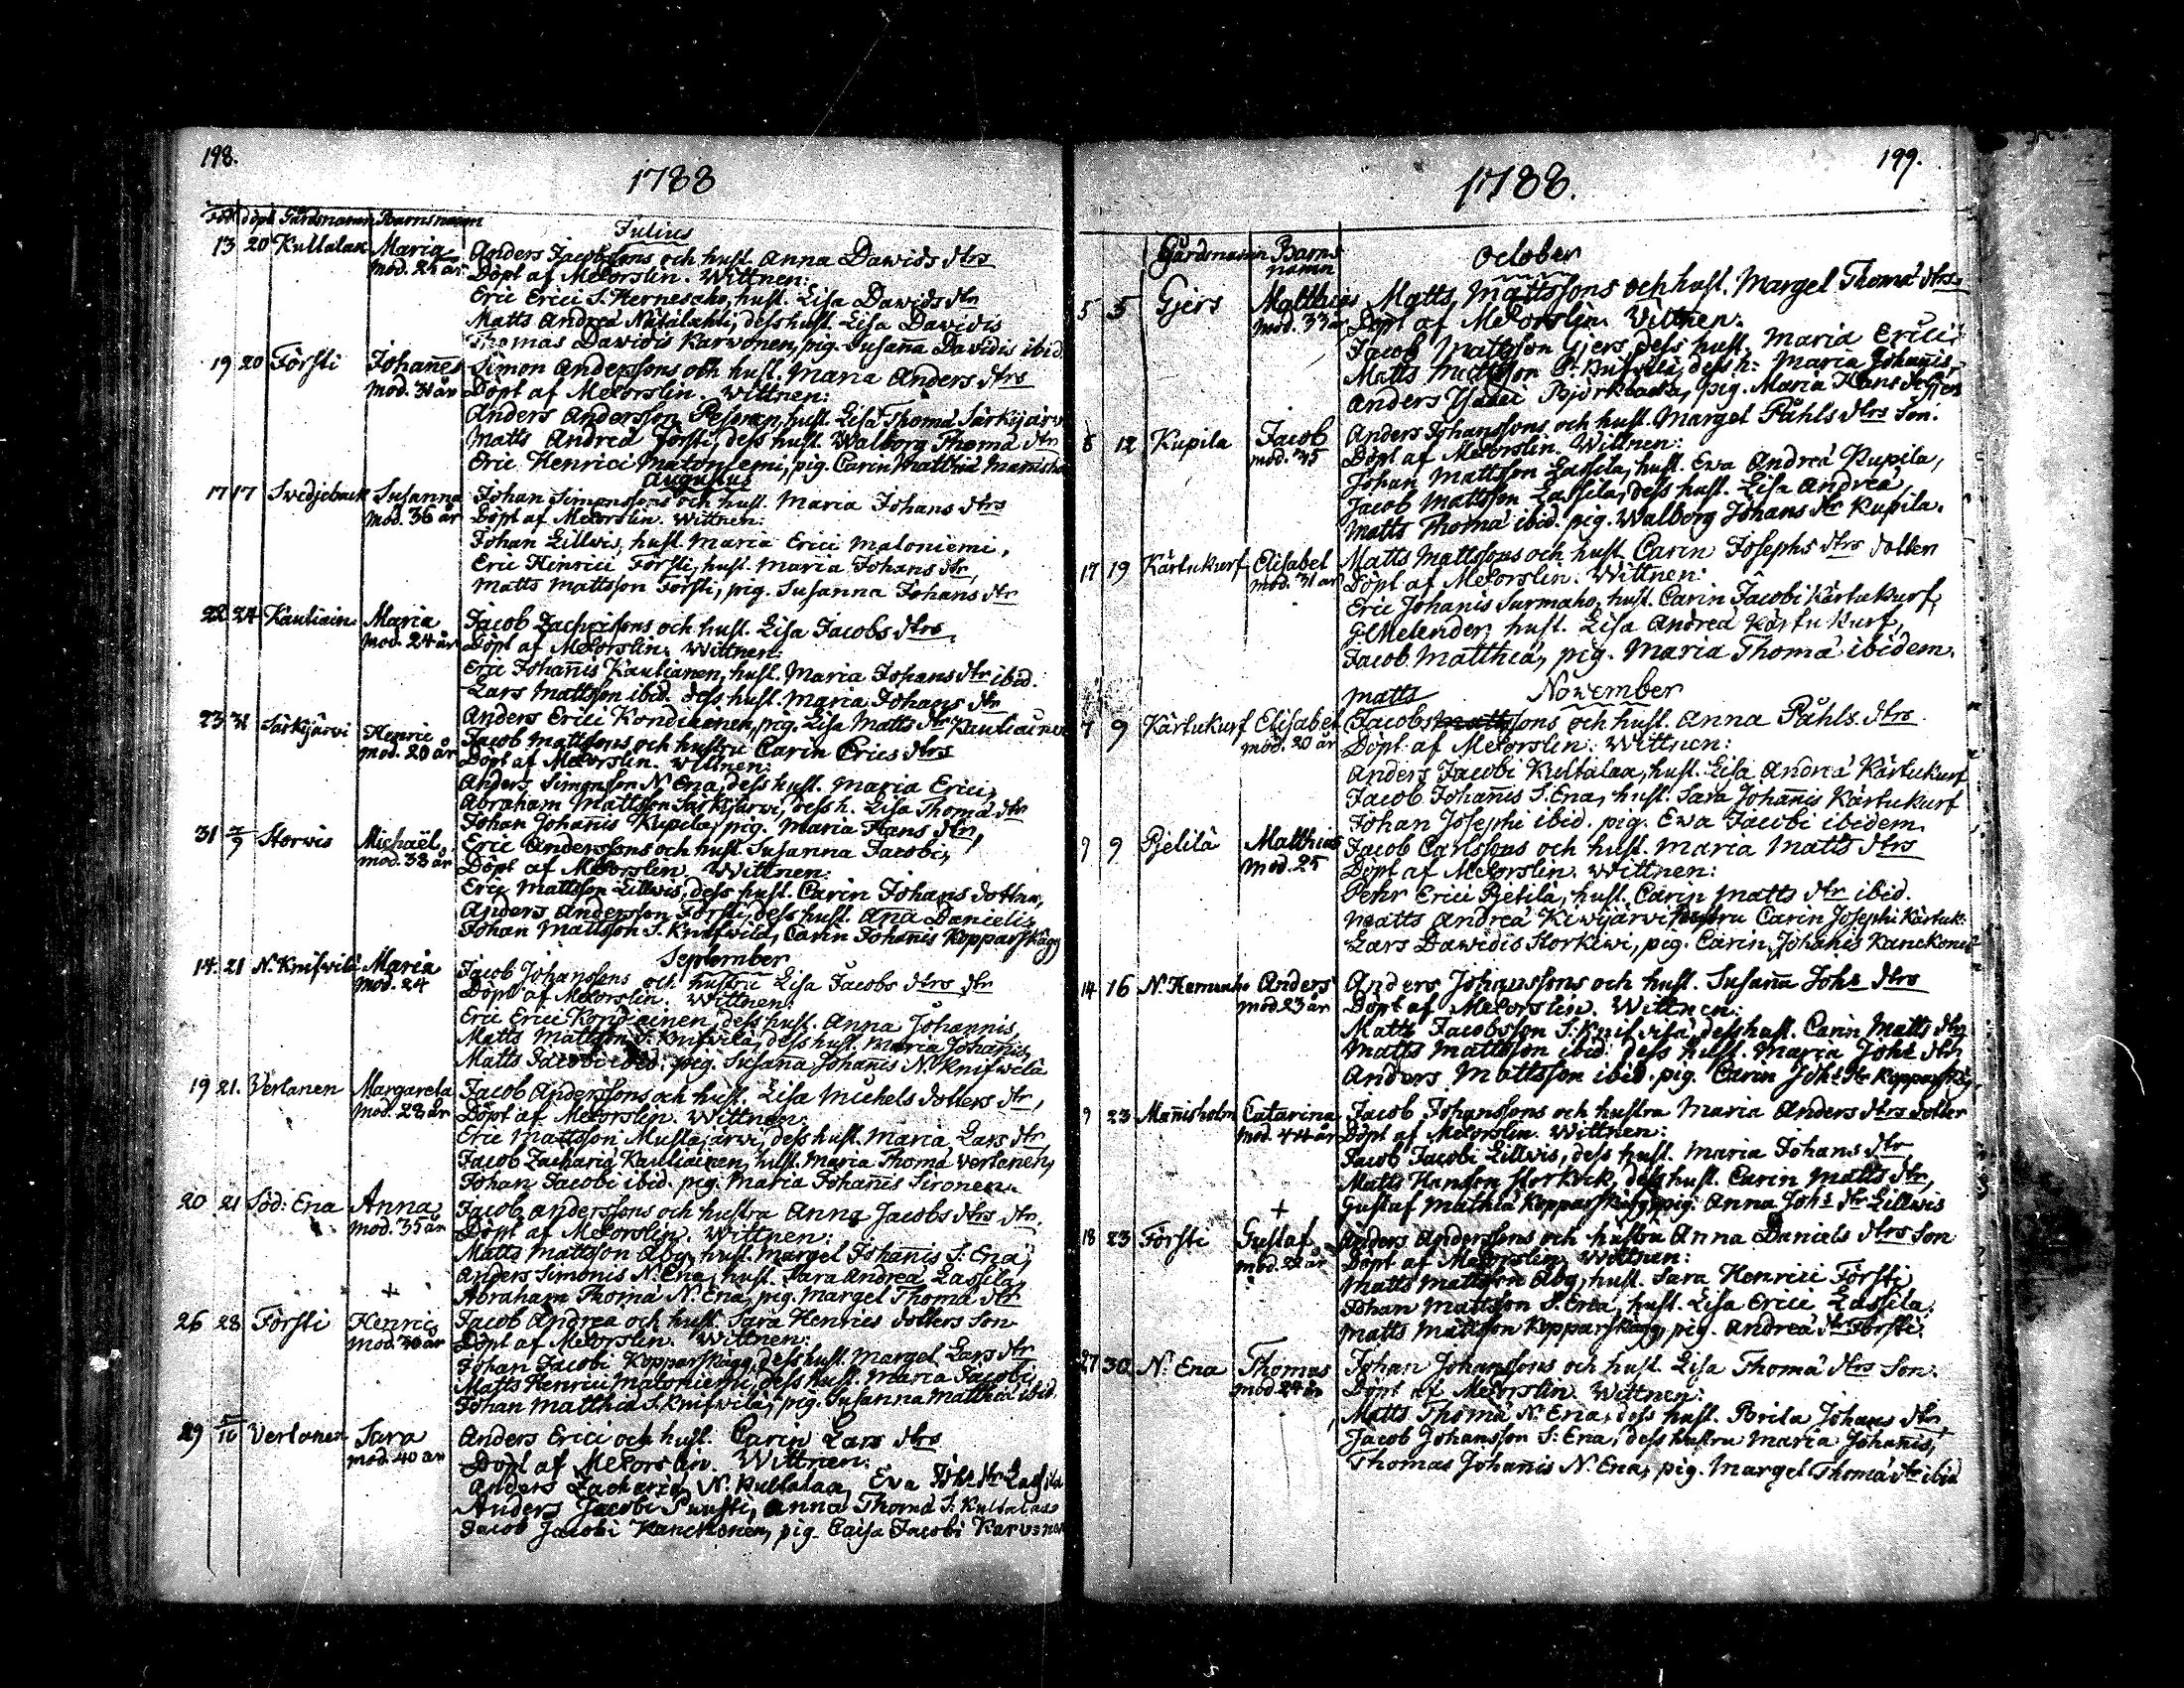 198.
1788
Föd döpt Gårdsnamn Barnsnamn
Julius
13 20 Kultalax Maria Anders Jacobssons och hust. Anna Dawids dtrs
mod. 25 år Döpt af Mexorslin. Wittnen:
Eric Erici S. Hernesaho, hust. Lisa Dawids dtr
Matts Andreæ Niitälahti, dess hust. Lisa Davidis
Thomas Davidis Karwonen, pig. Susana Davidis ibid.
19 20 Försti Johannes Simon Anderssons och hust. Maria Anders dtrs
mod. 31 år Döpt af Mexorslin. Wittnen:
Anders Andersson Pesonen, hust. Lisa Thomæ Särkijärw
Matts Andreæ Försti, dess hust. Walborg Thomæ dtr
Eric Henrici Matoniemi, pig. Carin Matthiæ
Augustus
17 17 Swedjeback Susanna Johan Simonssons och hust. Maria Johans dtrs
mod. 36 år Döpt af Mexorslin. Wittnen:
Johan Lillwis, hust. Maria Erici Matoniemi,
Eric Henrici Försti, hust. Maria Johans dtr,
Matts Mattsson Försti, pig. Susanna Johans dtr
22 24 Kauliain Maria Jacob Zachrissons och hust. Lisa Jacobs dtrs
mod. 24 år Döpt af Mexorslin. Wittnen:
Eric Johanis Kaulianen, hust. Maria Johans dtr ibid.
Lars Mattsson ibid. dess hust. Maria Johans dtr
Anders Erici Kondiainen, pig. Lisa Matts dtr Kauliainen
23 31 Särkijärvi Henric Jacob Mattssons och hustru Carin Erics dtrs
mod. 20 år Döpt af Mexorslin. Wittnen:
Anders Simonsson N. Ena, dess hust. Maria Erici,
Abraham Mattsson Särkijärwi, dess h. Lisa Thomæ dtr
Johan Johanis Kupila, pig. Maria Hans dtr,
31 7/9 Storwis Michaël Eric Anderssons och hust. Susanna Jacobi,
mod. 38 år Döpt af Mexorslin. Wittnen:
Eric Mattsson Lillwis, dess hust. Carin Johans dotter,
Anders Andersson Försti, dess hust. Ana Danielis,
Johan Mattsson S. Knifwilä, Carin Johanis Kopparskägg
September
14. 21 N. Knifwilä Maria Jacob Johanssons och hustru Lisa Jacobs dtrs dtr
mod. 24 Döpt af Mexorslin. Wittnen:
Eric Erici Kondiainen, dess hust. Anna Johannis,
Matts Mattsson S. Knifwilä, dess hust. Maria Johanis,
Matts Jacobi ibid. pig. Susana Johanis N. Knifwilä
19 21. Vertanen Margareta Jacob Anderssons och hust. Lisa Michels dotters dtr,
mod. 28 år Döpt af Mexorslin. Wittnen:
Eric Mattsson Mustajärwi, dess hust. Maria Lars dtr,
Jacob Zachariæ Kauliainen, hust. Maria Thomæ Vertanen,
Johan Jacobi ibid. pig. Maria Johanis Sironen.
20 21 Söd: Ena Anna Jacob Anderssons och hustru Anna Jacobs dtrs dtr.
mod. 35 år Döpt af Mexorslin. Wittnen:
Matts Mattsson Åby, hust. Margel Johanis S: Ena,
Anders Simonis N. Ena, hust. Sara Andreæ Lassila,
+ Abraham Thomæ N. Ena, pig. Margel Thomæ dtr
26 28 Försti Henric Jacob Andreæ och hust. Sara Henrics dotters son
mod. 40 år Döpt af Mexorslin. Wittnen:
Johan Jacobi Kopparskägg, dess hust. Margel Lars dtr
Matts Henrici Matoniemi, dess hust. Maria Jacobi,
Johan Matthiæ S. Knifwilä, pig. Susanna Matthiæ ibid.
29 /10 Vertanen Sara Anders Erici och hust. Carin Lars dtrs
mod. 40 år Döpt af Mexorslin. Wittnen:
Anders Zachariæ N. Kultalax, Eva Johs dtr Lassila
Anders Jacobi Purusti, Anna Thomæ S. Kultalax
Jacob Jacobi Kanckonen, pig. Caisa Jacobi Karvonen
199.
1788.
Gårdsnamn Barns namn
October
5 5 Gjers Matthias Matts Mattssons och hust. Margel Thomæ dtrs
mod. 33 år Döpt af Mexorslin. Vittnen:
Jacob Mattsson Gjers, dess hust. Maria Erici,
Matts Mattsson dess h: Maria Johanis,
Anders Björkbacka, pig. Maria Hans dtr Gjers
8 12 Kupila Jacob Anders Johanssons och hust. Margel Påhls dtrs son.
mod. 35 Döpt af Mexorslin. Wittnen:
Johan Mattsson Lassila, hust. Ewa Andreæ Kupila,
Jacob Mattsson Lassila, dess hust. Lisa Andreæ,
Matts Thomæ ibid. pig. Walborg Johans dtr Kupila.
17 19 Kärtukurf Elisabet Matts Mattssons och hust. Carin Josephs dtrs dotter
mod. 31 år Döpt af Mexorslin. Wittnen:
Eric Johanis Surmaho, hust. Carin Jacobi Kärtukurf,
G. Melender, hust. Lisa Andreæ Kärtukurf,
Jacob Matthiæ, pig. Maria Thomæ ibidem.
Matts
November
7 9 Kärtukurf Elisabet Jacobs Mattssons och hust. Anna Påhls dtrs
mod. 20 år Döpt af Mexorslin. Wittnen:
Anders Jacobi Kultalax, hust. Lisa Andreæ Kärtukurf
Jacob Johanis S. Ena, hust. Sara Johanis Kärtukurf
Johan Josephi ibid. pig. Ewa Jacobi ibidem.
9 9 Pjetilä Matthias Jacob Carlssons och hust. Maria Matts dtrs
mod. 25 Döpt af Mexorslin. Wittnen:
Pehr Erici Pjetilä, hust. Carin Matts dtr ibid.
Matts Andreæ Kiwijärwi, hustru Carin Josephi Kärtuk:
Lars Dawidis Storkiwi, pig. Carin Johanis Kanckonen
14 16 N. Anders Anders Johanssons och hust. Susana Johs dtrs
mod. 23 år Döpt af Mexorslin. Wittnen:
Matts Jacobsson S. Knifvilä, dess hust. Carin Matts dtr
Matts Mattsson ibid. dess hust. Maria Johs dtr
Anders Mattsson ibid. pig. Carin Johs dtr Kopparskägg.
9 23 Manisholm Catarina Jacob Johanssons och hustru Maria Anders dtrs dotter
mod. 44 år Döpt af Mexorslin. Wittnen:
Jacob Jacobi Lillwis, dess hust. Maria Johans dtr
Matts Hansson Storkäck, dess hust. Carin Matts dtr,
+ Gustaf Mathiæ Kopparskägg, pig. Anna Johs dtr Lillwis
18 23 Försti Gustaf Anders Anderssons och hustru Anna Daniels dtrs son
mod. 22 år Döpt af Mexorslin. Wittnen:
Matts Mattsson Åby, hust. Sara Henrici Försti,
Johan Mattsson S. Ena, hust. Lisa Erici Lassila.
Matts Mattsson Kopparskägg, pig. Andreæ dtr Försti.
27 30 N. Ena Thomas Johan Johanssons och hust. Lisa Thomæ dtrs son.
mod. 24 år Döpt af Mexorslin. Wittnen:
Matts Thomæ N. Ena, dess hust. Brita Johans dtr,
Jacob Johansson S: Ena, dess hustru Maria Johanis,
Thomas Johanis N. Ena, pig. Margel Thomæ dtr ibid